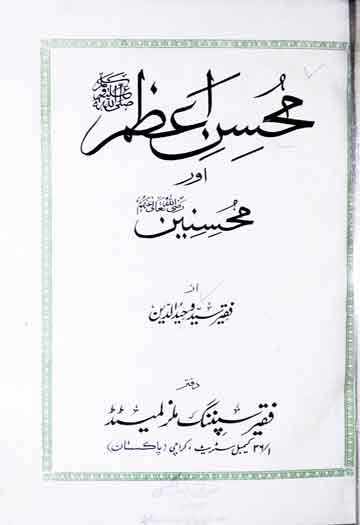 محسنِ اعظم ﷺ
اور
محسنین رضی اللہ تعالیٰ عنہم
از
فقیر سید وحید الدین
دفتر
فقیر سپننگ ملز لمیٹڈ
۳۶/۱ کیمبل سٹریٹ، کراچی (پاکستان)